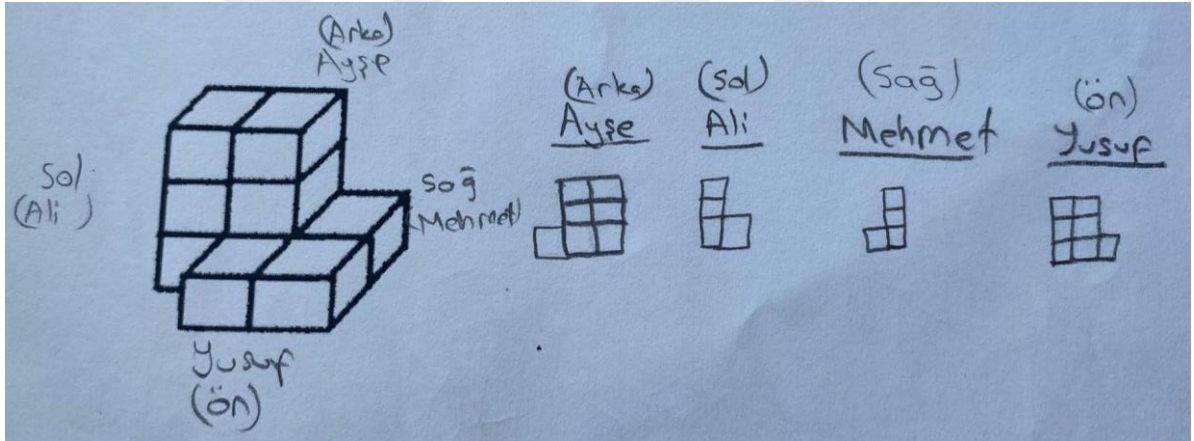 (Arka)
Ayşe
Sol
(Ali)
Sağ
(Mehmet)
Yusuf
(ön)
(Arka)
Ayşe
(Sol)
Ali
(Sağ)
Mehmet
(ön)
Yusuf